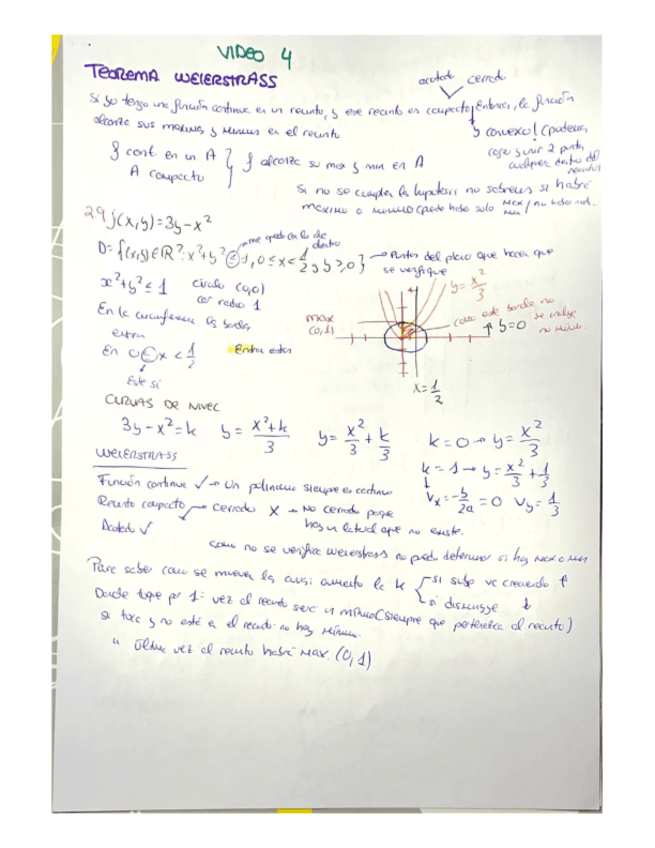 VIDEO 4
TEOREMA WEIERSTRASS
acotado cerrado
Si yo tengo una función continua en un recinto, y ese recinto es compacto, Entonces, la función
alcanza sus maximos y minimos en el recinto
convexo! (podemos
coger y unir 2 puntos
cualquiera dentro del
f cont. en un A } f alcanza su max y min en A
A compacto
Si no se cumplen las hipotesis no sabemos si habrá
maximo o minimo (puede haber solo Max / Min / no haber nada.
29 f(x,y)=3y-x²
me quedo con lo de dentro
D={(x,y)∈R²: x²+y² ≤ 1, 0≤x<1/2 y y≥0} → Puntos del plano que hacen que
se verifique
x²+y²≤1 circulo (0,0)
con radio 1
En la circunferencia los bordes
entran
En 0≤x<1/2 Entran estos
Este si
y=x²/3
max
(0,1)
como este borde no
se incluye
no
y=0
x=1/2
CURVAS DE NIVEL
3y-x²=k y=x²+k/3 y=x²/3+k/3 k=0→y=x²/3
k=1→y=x²/3+1/3
Vx=-b/2a=0 Vy=1/3
WEIERSTRASS
Función continua ✓→ Un polinomio siempre es continuo
Recinto compacto → cerrado X → No cerrado porque
hay un lateral que no existe.
Acotado ✓
como no se verifica weierstrass no puedo determinar si hay max o min
Para saber como se mueven las curvas aumento la k { si sube va creciendo ↑
si disminuye ↓
Donde toque por 1ª vez el recinto será un mínimo (siempre que pertenezca al recinto)
si toca y no está en el recinto no hay mínimo.
" última vez el recinto habrá max. (0,1)